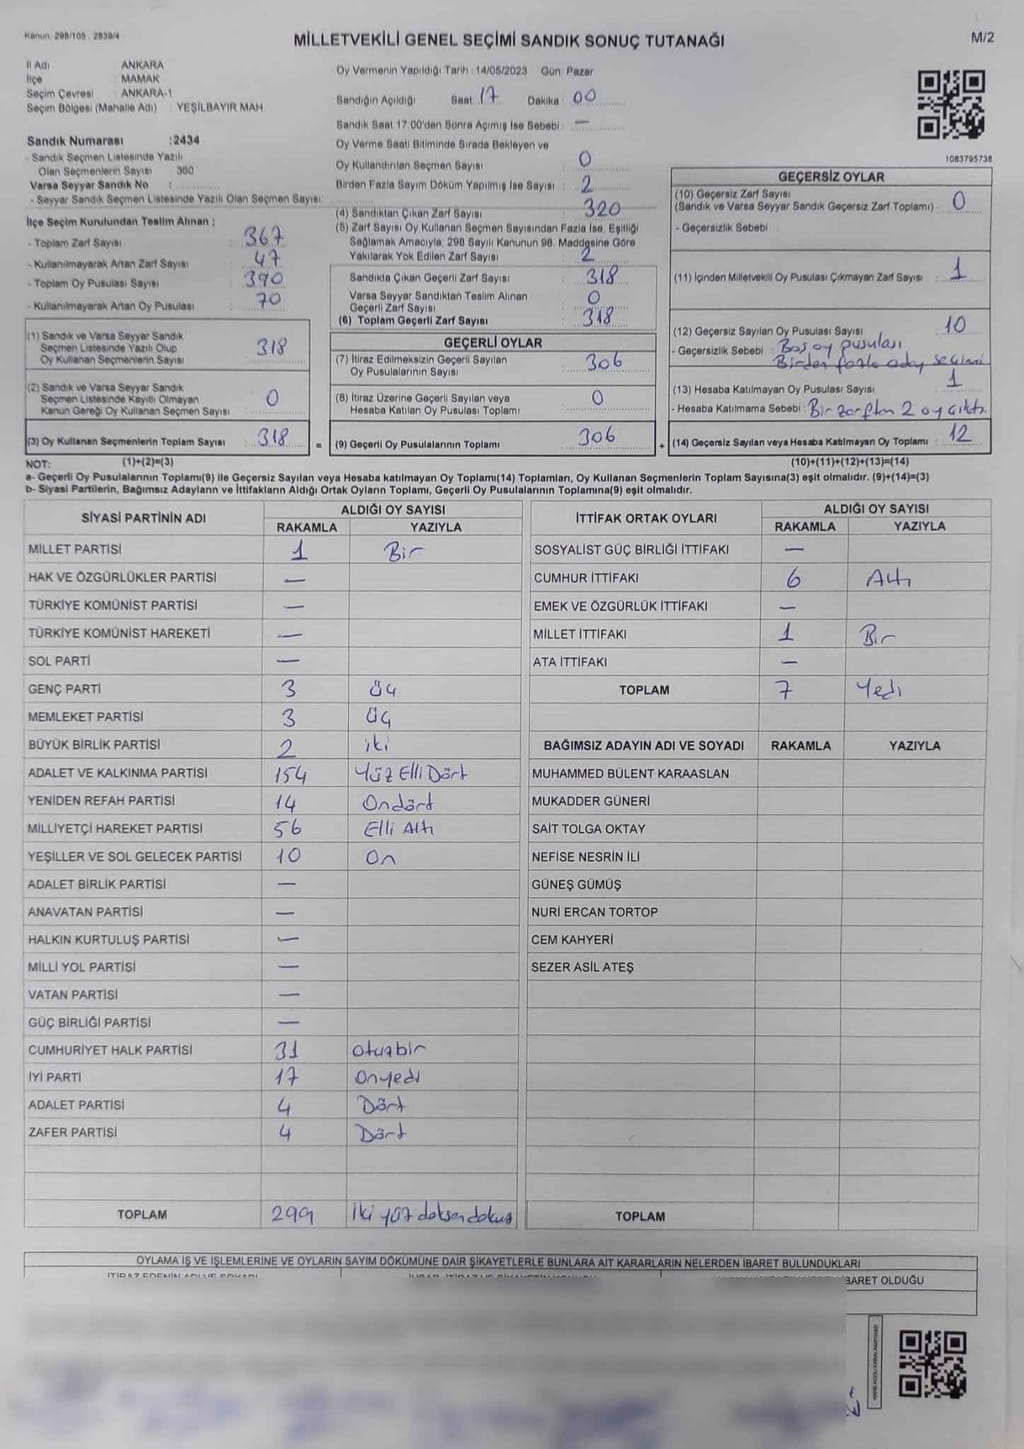 Kanun: 298/105 , 2839/4
MİLLETVEKİLİ GENEL SEÇİMİ SANDIK SONUÇ TUTANAĞI
M/2
İl Adı : ANKARA
İlçe : MAMAK
Seçim Çevresi : ANKARA-1
Seçim Bölgesi (Mahalle Adı) : YEŞİLBAYIR MAH
Sandık Numarası :2434
- Sandık Seçmen Listesinde Yazılı
Olan Seçmenlerin Sayısı : 360
Varsa Seyyar Sandık No :
- Seyyar Sandık Seçmen Listesinde Yazılı Olan Seçmen Sayısı:
İlçe Seçim Kurulundan Teslim Alınan :
- Toplam Zarf Sayısı : 367
- Kullanılmayarak Artan Zarf Sayısı : 47
- Toplam Oy Pusulası Sayısı : 390
- Kullanılmayarak Artan Oy Pusulası : 70
(1) Sandık ve Varsa Seyyar Sandık
Seçmen Listesinde Yazılı Olup
Oy Kullanan Seçmenlerin Sayısı : 318
(2) Sandık ve Varsa Seyyar Sandık
Seçmen Listesinde Kayıtlı Olmayan
Kanun Gereği Oy Kullanan Seçmen Sayısı : 0
(3) Oy Kullanan Seçmenlerin Toplam Sayısı : 318 =
Oy Vermenin Yapıldığı Tarih :14/05/2023 Gün: Pazar
Sandığın Açıldığı Saat: 17 Dakika : 00
Sandık Saat 17:00'den Sonra Açımış İse Sebebi: —
Oy Verme Saati Bitiminde Sırada Bekleyen ve
Oy Kullandırılan Seçmen Sayısı : 0
Birden Fazla Sayım Döküm Yapılmış İse Sayısı : 2
(4) Sandıktan Çıkan Zarf Sayısı : 320
(5) Zarf Sayısı Oy Kullanan Seçmen Sayısından Fazla İse, Eşitliği
Sağlamak Amacıyla, 298 Sayılı Kanunun 98. Maddesine Göre
Yakılarak Yok Edilen Zarf Sayısı : 2
Sandıkta Çıkan Geçerli Zarf Sayısı : 318
Varsa Seyyar Sandıktan Teslim Alınan
Geçerli Zarf Sayısı : 0
(6) Toplam Geçerli Zarf Sayısı : 318
GEÇERLİ OYLAR
(7) İtiraz Edilmeksizin Geçerli Sayılan
Oy Pusulalarının Sayısı : 306
(8) İtiraz Üzerine Geçerli Sayılan veya
Hesaba Katılan Oy Pusulası Toplamı : 0
(9) Geçerli Oy Pusulalarının Toplamı : 306 +
1083795738
GEÇERSİZ OYLAR
(10) Geçersiz Zarf Sayısı
(Sandık ve Varsa Seyyar Sandık Geçersiz Zarf Toplamı) : 0
- Geçersizlik Sebebi :
(11) İçinden Milletvekili Oy Pusulası Çıkmayan Zarf Sayısı : 1
(12) Geçersiz Sayılan Oy Pusulası Sayısı : 10
- Geçersizlik Sebebi : Boş oy pusulası
Birden fazla aday seçimi
(13) Hesaba Katılmayan Oy Pusulası Sayısı : 1
- Hesaba Katılmama Sebebi : Bir zarftan 2 oy çıktı.
(14) Geçersiz Sayılan veya Hesaba Katılmayan Oy Toplamı : 12
NOT: (1)+(2)=(3) (10)+(11)+(12)+(13)=(14)
a- Geçerli Oy Pusulalarının Toplamı(9) ile Geçersiz Sayılan veya Hesaba katılmayan Oy Toplamı(14) Toplamları, Oy Kullanan Seçmenlerin Toplam Sayısına(3) eşit olmalıdır. (9)+(14)=(3)
b- Siyasi Partilerin, Bağımsız Adayların ve İttifakların Aldığı Ortak Oyların Toplamı, Geçerli Oy Pusulalarının Toplamına(9) eşit olmalıdır.
SİYASİ PARTİNİN ADI ALDIĞI OY SAYISI
RAKAMLA YAZIYLA
MİLLET PARTİSİ 1 Bir
HAK VE ÖZGÜRLÜKLER PARTİSİ —
TÜRKİYE KOMÜNİST PARTİSİ —
TÜRKİYE KOMÜNİST HAREKETİ —
SOL PARTİ —
GENÇ PARTİ 3 üç
MEMLEKET PARTİSİ 3 üç
BÜYÜK BİRLİK PARTİSİ 2 iki
ADALET VE KALKINMA PARTİSİ 154 Yüz Elli Dört
YENİDEN REFAH PARTİSİ 14 Ondört
MİLLİYETÇİ HAREKET PARTİSİ 56 Elli Altı
YEŞİLLER VE SOL GELECEK PARTİSİ 10 On
ADALET BİRLİK PARTİSİ —
ANAVATAN PARTİSİ —
HALKIN KURTULUŞ PARTİSİ —
MİLLİ YOL PARTİSİ —
VATAN PARTİSİ —
GÜÇ BİRLİĞİ PARTİSİ —
CUMHURİYET HALK PARTİSİ 31 otuzbir
İYİ PARTİ 17 Onyedi
ADALET PARTİSİ 4 Dört
ZAFER PARTİSİ 4 Dört
TOPLAM 299 İki yüz doksan dokuz
İTTİFAK ORTAK OYLARI ALDIĞI OY SAYISI
RAKAMLA YAZIYLA
SOSYALİST GÜÇ BİRLİĞİ İTTİFAKI —
CUMHUR İTTİFAKI 6 Altı
EMEK VE ÖZGÜRLÜK İTTİFAKI —
MİLLET İTTİFAKI 1 Bir
ATA İTTİFAKI —
TOPLAM 7 Yedi
BAĞIMSIZ ADAYIN ADI VE SOYADI RAKAMLA YAZIYLA
MUHAMMED BÜLENT KARAASLAN
MUKADDER GÜNERİ
SAİT TOLGA OKTAY
NEFİSE NESRİN İLİ
GÜNEŞ GÜMÜŞ
NURİ ERCAN TORTOP
CEM KAHYERİ
SEZER ASİL ATEŞ
TOPLAM
OYLAMA İŞ VE İŞLEMLERİNE VE OYLARIN SAYIM DÖKÜMÜNE DAİR ŞİKAYETLERLE BUNLARA AİT KARARLARIN NELERDEN İBARET BULUNDUKLARI
İBARET OLDUĞU